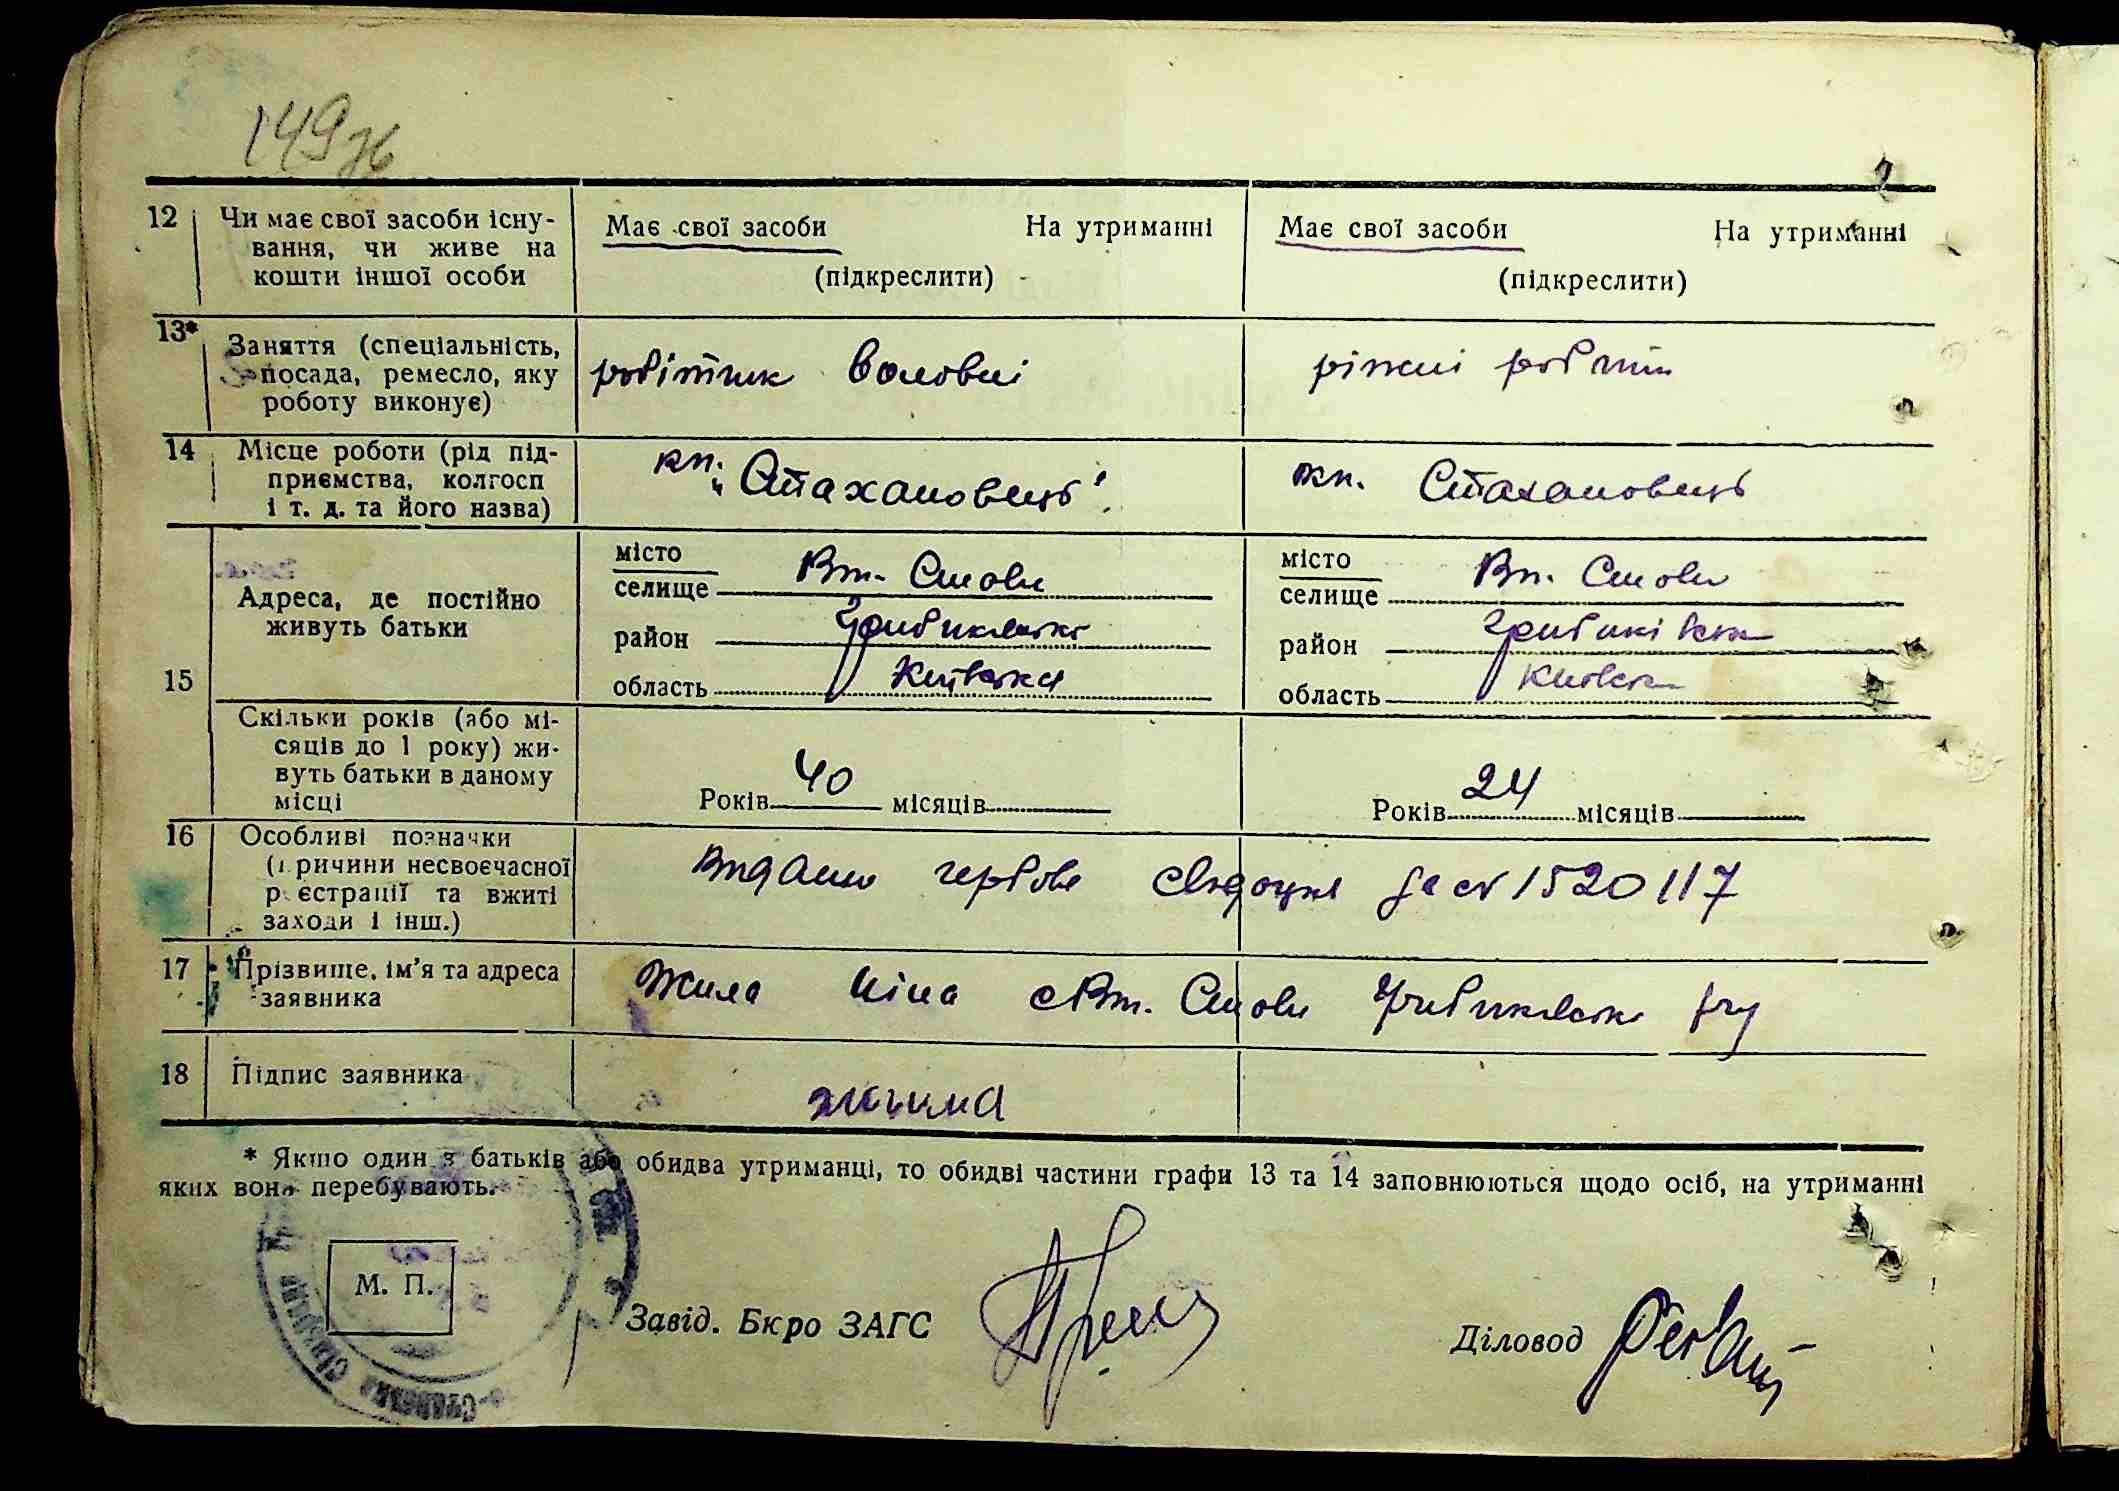 149
12 Чи має свої засоби існу-
вання, чи живе на
кошти іншої особи
Має свої засоби На утриманні
(підкреслити)
Має свої засоби На утриманні
(підкреслити)
13* Заняття (спеціальність,
посада, ремесло, яку
роботу виконує)
робітник воловні
ріжні роботи
14 Місце роботи (рід під-
приємства, колгосп
і т. д. та його назва)
кп. „Стахановець"
кп. Стахановець
15 Адреса, де постійно
живуть батьки
місто
селище Вт. Стови
район
область Київська
місто
селище Вт. Стови
район
область Київська
Скільки років (або мі-
сяців до 1 року) жи-
вуть батьки в даному
місці
Років 40 місяців
Років 24 місяців
16 Особливі позначки
(причини несвоєчасної
реєстрації та вжиті
заходи і інш.)
Видано гербове свідоцтво за № 1520117
17 Прізвище, ім'я та адреса
заявника
Жила Ніна с Вт. Стови р-ну
18 Підпис заявника
жила
* Якщо один з батьків або обидва утриманці, то обидві частини графи 13 та 14 заповнюються щодо осіб, на утриманні
яких вони перебувають.
М. П.
Завід. Бюро ЗАГС
Діловод